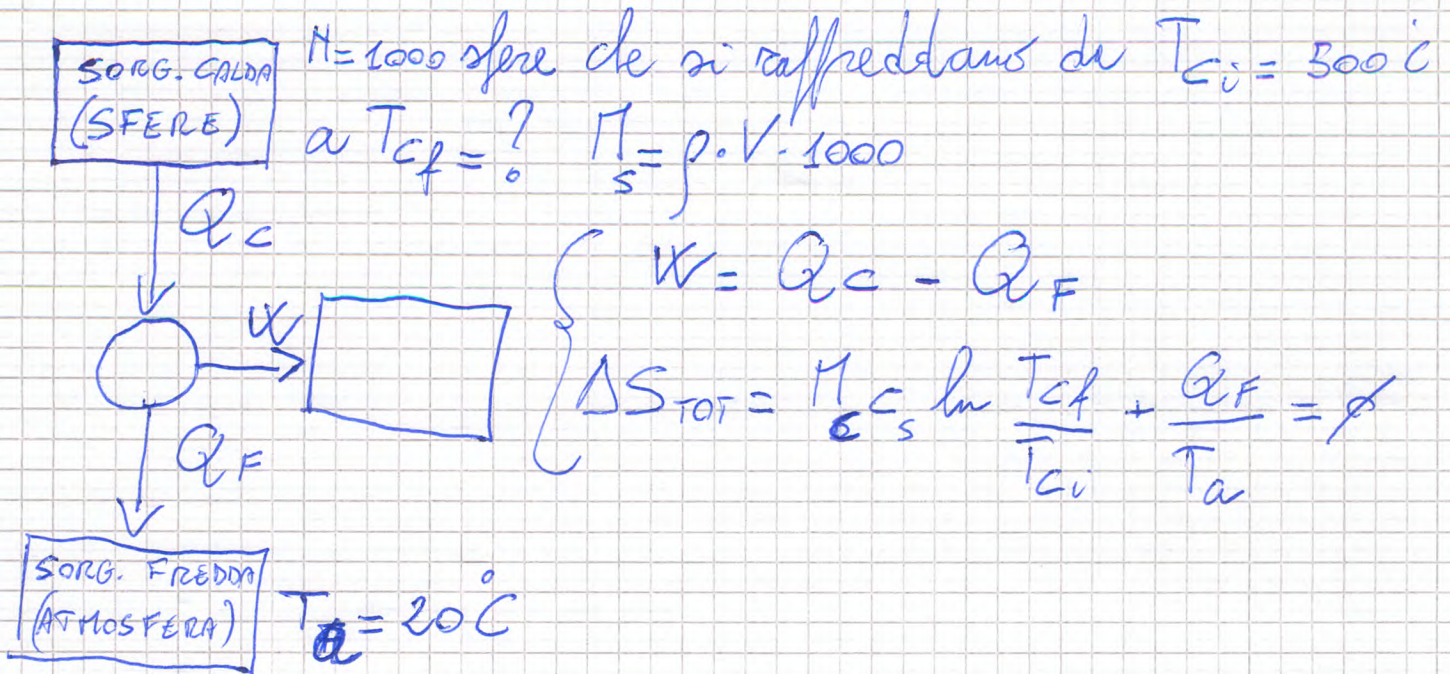 SORG. CALDA
(SFERE)
N=1000 sfere che si raffreddano da T_ci = 500 °C
a T_cf = ? M_s = ρ·V·1000
Q_C
W = Q_C - Q_F
W
ΔS_TOT = M_s c_s ln T_cf/T_ci + Q_F/T_a = ∅
Q_F
SORG. FREDDA
(ATMOSFERA)
T_a = 20 °C